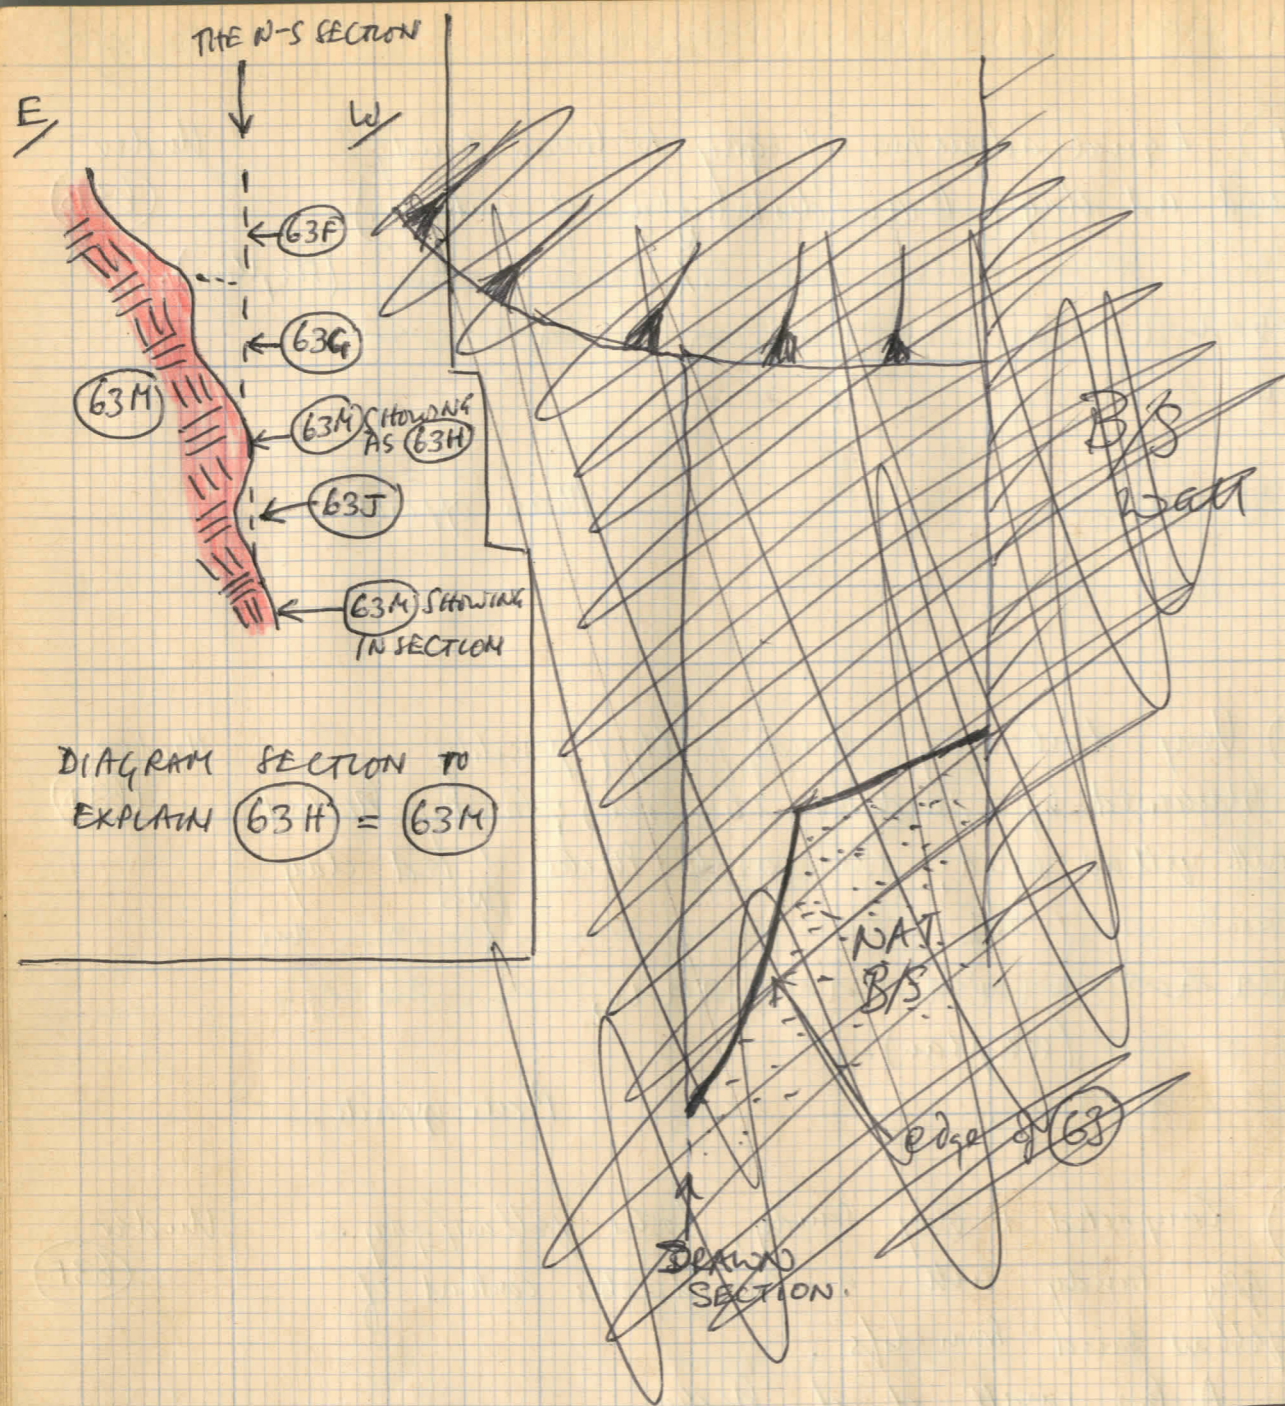 THE N-S SECTION
E/
W/
63F
63G
63M
63M SHOWING
AS 63H
63J
63M SHOWING
IN SECTION
DIAGRAM SECTION TO
EXPLAIN 63H = 63M
B/S
Wall
NAT
B/S
edge of 63
DRAWN
SECTION.